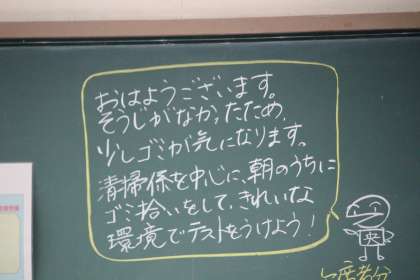 おはようございます。
そうじがなかったため、
少しゴミが気になります。
清掃係を中心に、朝のうちに
ゴミ拾いをして、きれいな
環境でテストをうけよう！
央